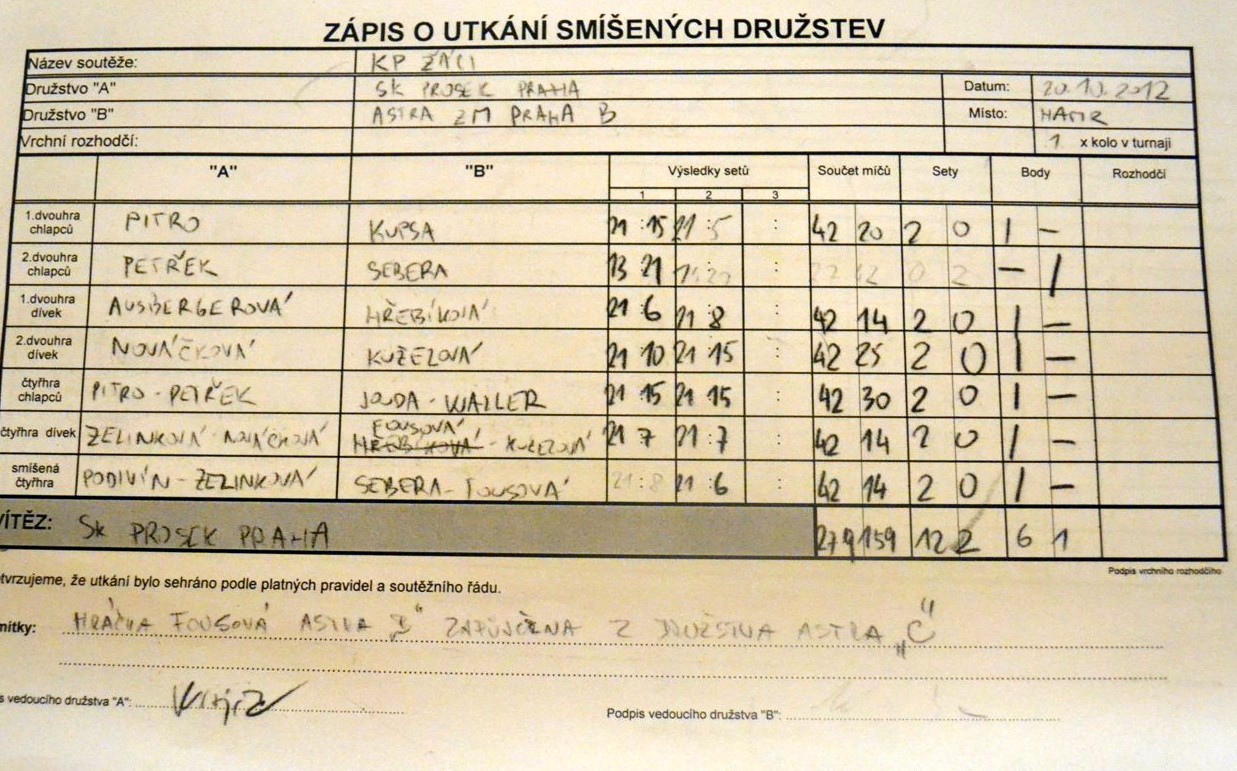 ZÁPIS O UTKÁNÍ SMÍŠENÝCH DRUŽSTEV
Název soutěže: KP ŽÁCI
Družstvo "A" SK PROSEK PRAHA Datum: 20.10.2012
Družstvo "B" ASTRA ZM PRAHA B Místo: HAMR
Vrchní rozhodčí: 1 x kolo v turnaji
"A" "B" Výsledky setů Součet míčů Sety Body Rozhodčí
1 2 3
1.dvouhra chlapců PITRO KUPSA 21:15 21:5 : 42 20 2 0 1 -
2.dvouhra chlapců PETŘEK SEBERA 13 21 : 0 2 - 1
1.dvouhra dívek AUSBERGEROVÁ HŘEBÍKOVÁ 21:6 21:8 : 42 14 2 0 1 -
2.dvouhra dívek NOVÁČKOVÁ KUŽELOVÁ 21 10 21 15 : 42 25 2 0 1 -
čtyřhra chlapců PITRO - PETŘEK JOUDA - WALLER 21 15 21 15 : 42 30 2 0 1 -
FOUSOVÁ
čtyřhra dívek ZELINKOVÁ - NOVÁČKOVÁ HŘEBÍKOVÁ - KUŽELOVÁ 21 7 21:7 : 42 14 2 0 1 -
smíšená čtyřhra PODIVÍN - ZELINKOVÁ SEBERA - FOUSOVÁ 21:8 21:6 : 42 14 2 0 1 -
VÍTĚZ: SK PROSEK PRAHA 279 159 12 2 6 1
Podpis vrchního rozhodčího
tvrzujeme, že utkání bylo sehráno podle platných pravidel a soutěžního řádu.
mítky: HRÁČKA FOUSOVÁ ASTRA "B" ZAPŮJČENA Z DRUŽSTVA ASTRA „C"
s vedoucího družstva "A":
Podpis vedoucího družstva "B":